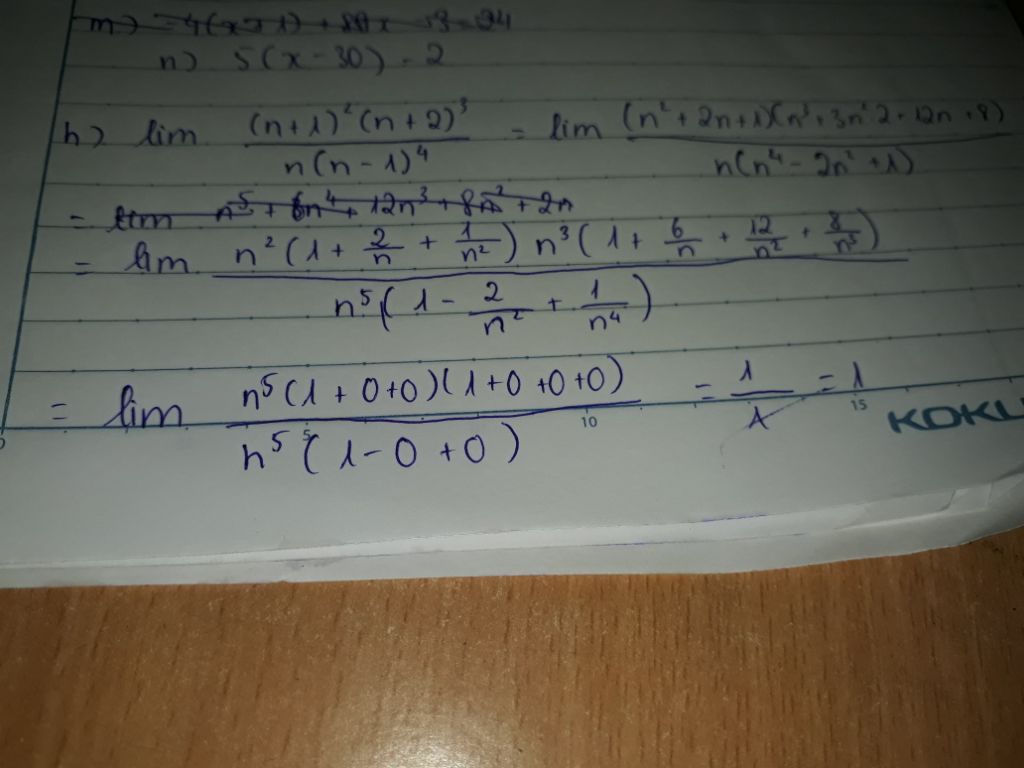 m) = 4(x+1) + 80x - 3 = 24
n) 5(x - 30) - 2
h) lim (n+1)²(n+2)³ / n(n-1)⁴ = lim (n²+2n+1)(n³+3n²2+12n+8) / n(n⁴-2n²+1)
= lim n⁵ + 6n⁴ + 12n³ + 8n² + 2n
= lim n²(1 + 2/n + 1/n²) n³(1 + 6/n + 12/n² + 8/n³) / n⁵(1 - 2/n² + 1/n⁴)
= lim n⁵(1+0+0)(1+0+0+0) / n⁵(1-0+0) = 1/1 = 1
10 15 KOKU